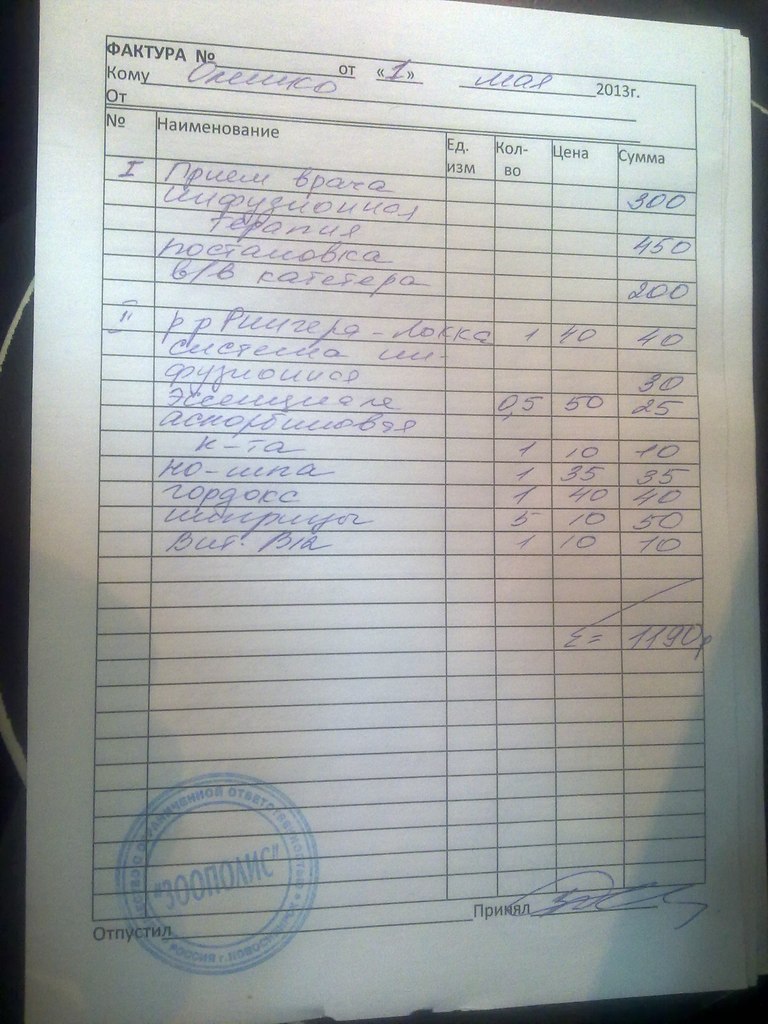 ФАКТУРА № от «1» мая 2013г.
Кому Олешко
От
№ Наименование Ед. изм Кол-во Цена Сумма
I Прием врача 300
инфузионная
терапия 450
постановка
в/в катетера 200
II р-р Рингера-Локка 1 40 40
система ин-
фузионная 30
Эссенциале 0,5 50 25
аскорбиновая
к-та 1 10 10
но-шпа 1 35 35
гордокс 1 40 40
шприцы 5 10 50
Вит. В12 1 10 10
Σ= 1190р
ОГРАНИЧЕННОЙ ОТВЕТСТВЕННОСТЬЮ
"ЗООПОЛИС"
РОССИЯ г.
Принял
Отпустил